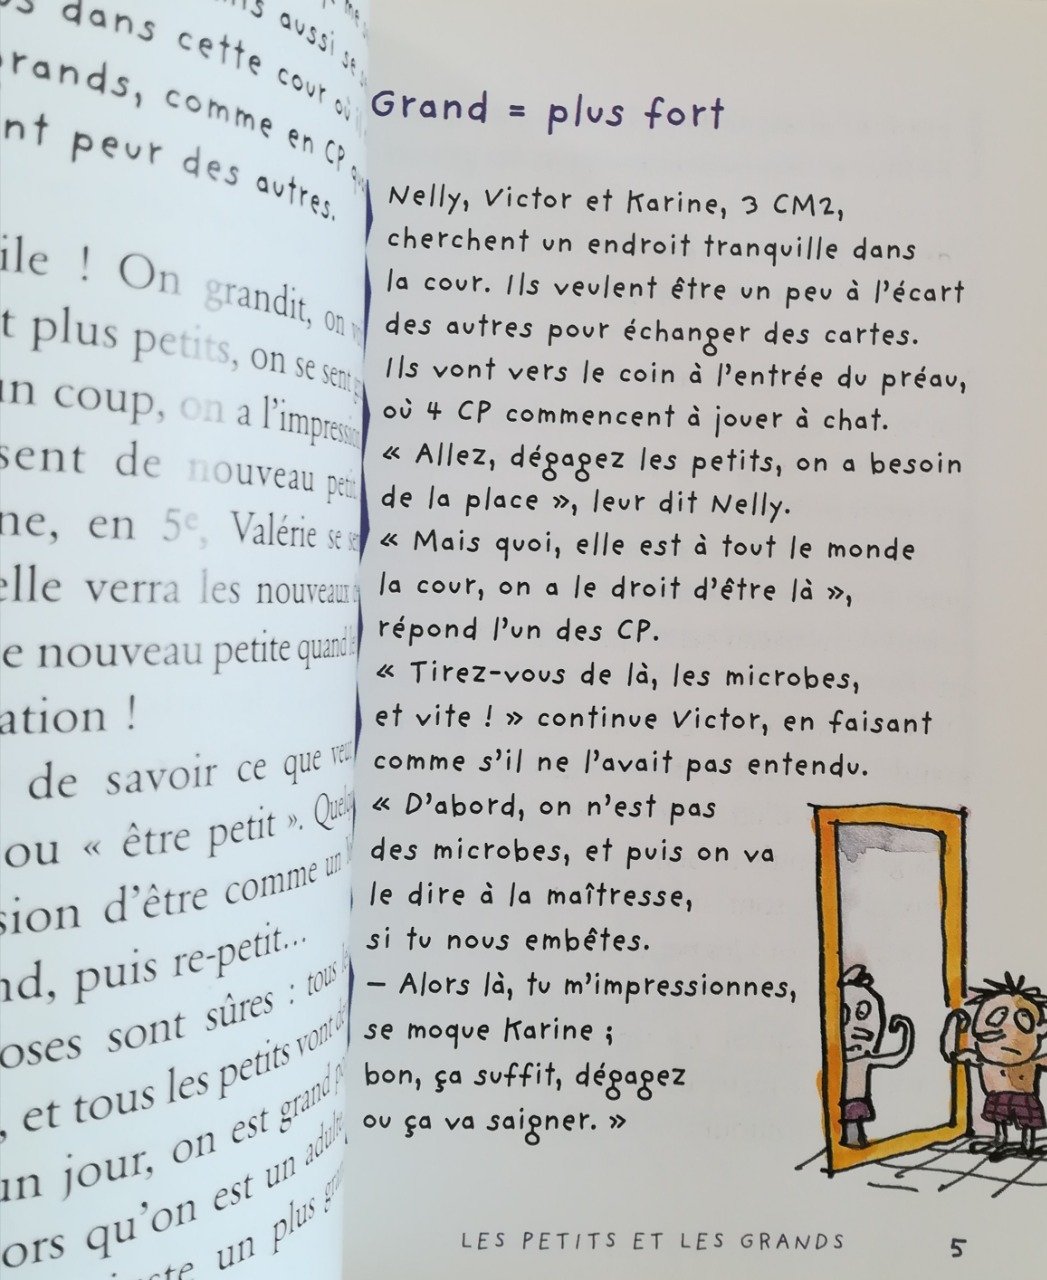 aussi se
dans cette cour où il
rands, comme en CP
nt peur des autres.
ile ! On grandit, on
t plus petits, on se sent
un coup, on a l'impression
sent de nouveau
ne, en 5e, Valérie se
elle verra les nouveaux
e nouveau petite quand
ation !
de savoir ce que
ou « être petit ».
sion d'être comme un
nd, puis re-petit...
oses sont sûres : tous
, et tous les petits vont
un jour, on est grand
ors qu'on est un adulte,
un plus
Grand = plus fort
Nelly, Victor et Karine, 3 CM2,
cherchent un endroit tranquille dans
la cour. Ils veulent être un peu à l'écart
des autres pour échanger des cartes.
Ils vont vers le coin à l'entrée du préau,
où 4 CP commencent à jouer à chat.
« Allez, dégagez les petits, on a besoin
de la place », leur dit Nelly.
« Mais quoi, elle est à tout le monde
la cour, on a le droit d'être là »,
répond l'un des CP.
« Tirez-vous de là, les microbes,
et vite ! » continue Victor, en faisant
comme s'il ne l'avait pas entendu.
« D'abord, on n'est pas
des microbes, et puis on va
le dire à la maîtresse,
si tu nous embêtes.
– Alors là, tu m'impressionnes,
se moque Karine ;
bon, ça suffit, dégagez
ou ça va saigner. »
LES PETITS ET LES GRANDS 5